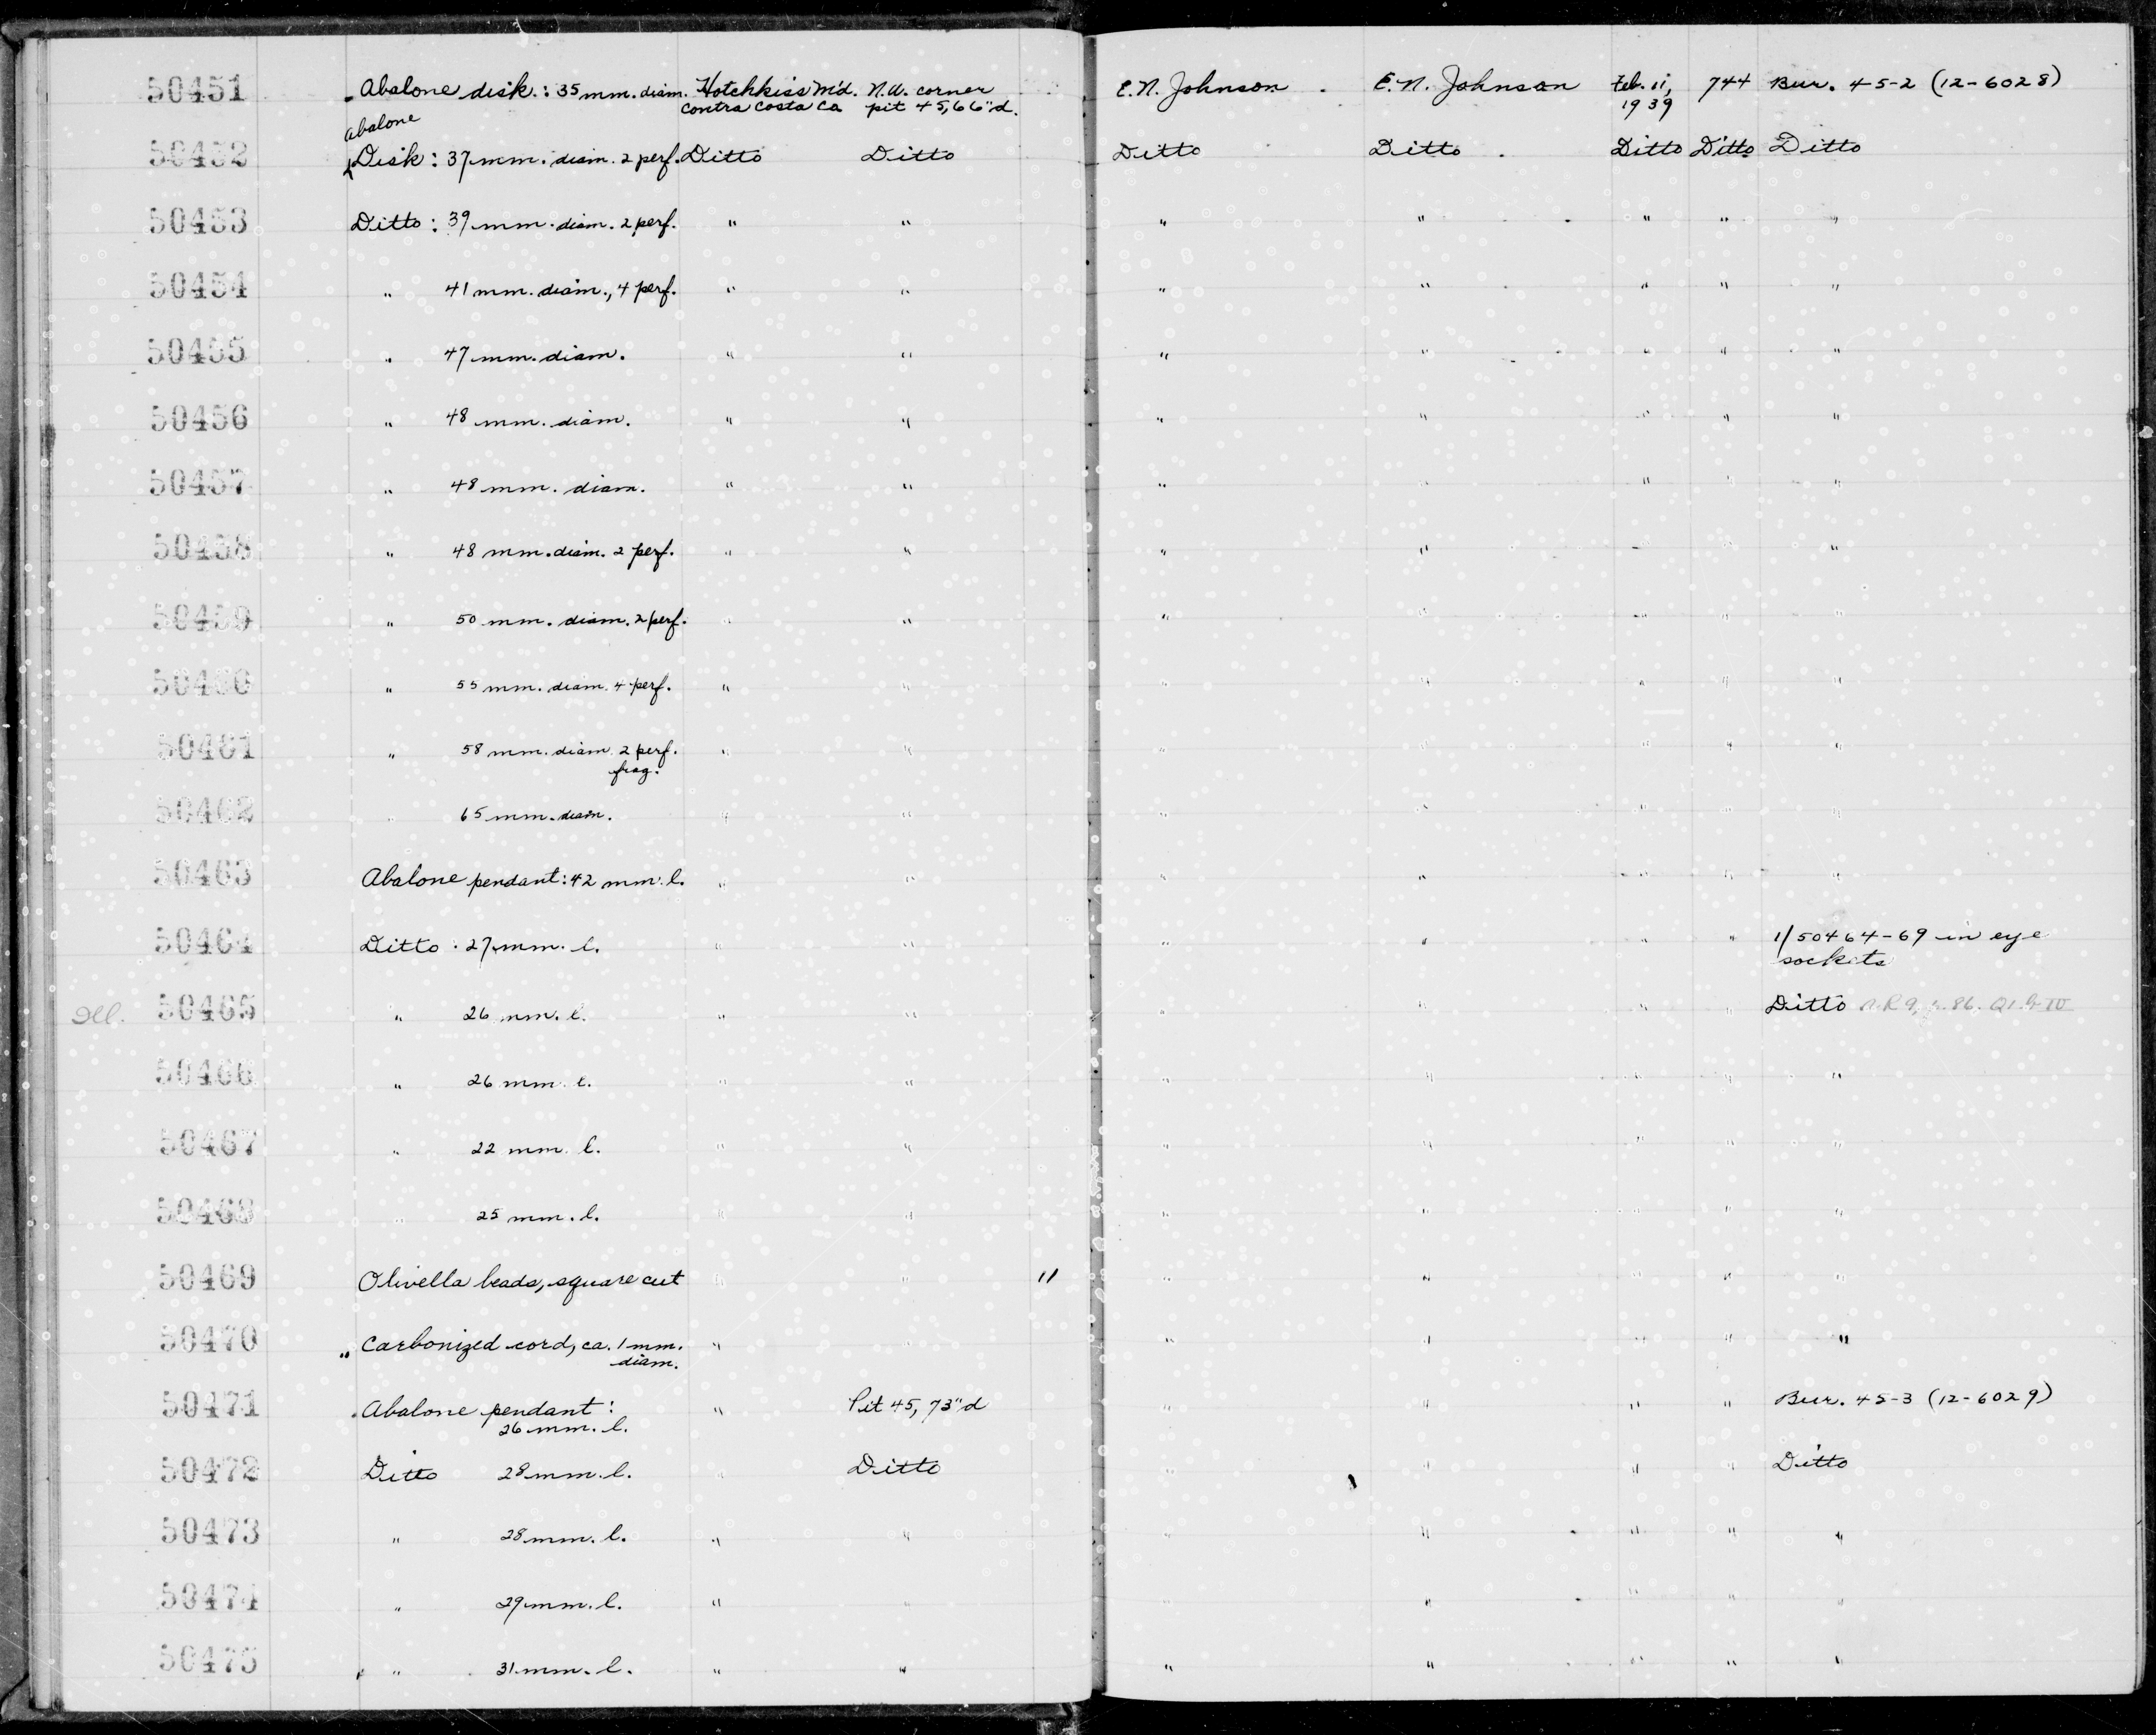 50451 Abalone disk: 35 mm. diam. Hotchkiss M'd. N.W. corner E.N. Johnson E.N. Johnson Feb. 11, 744 Bur. 45-2 (12-6028)
Contra Costa Co. pit 45, 66"d. 1939
abalone
50452 Disk: 37 mm. diam. 2 perf. Ditto Ditto Ditto Ditto Ditto Ditto Ditto
50453 Ditto: 39 mm. diam. 2 perf. " " " " " " "
50454 " 41 mm. diam., 4 perf. " " " " " " "
50455 " 47 mm. diam. " " " " " " "
50456 " 48 mm. diam. " " " " " " "
50457 " 48 mm. diam. " " " " " " "
50458 " 48 mm. diam. 2 perf. " " " " " "
50459 " 50 mm. diam. 2 perf. " " " " " " "
50460 " 55 mm. diam. 4 perf. " " " " " " "
50461 " 58 mm. diam. 2 perf. " " " " " " "
frag.
50462 " 65 mm. diam. " " " " " " "
50463 Abalone pendant: 42 mm. l. " " " " " " "
50464 Ditto : 27 mm. l. " " " " " " 1/50464-69 in eye
sockets
Ill. 50465 " 26 mm. l. " " " " " " Ditto
50466 " 26 mm. l. " " " " " " "
50467 " 22 mm. l. " " " " " " "
50468 " 25 mm. l. " " " " " " "
50469 Olivella beads, square cut " " 11 " " " " "
50470 Carbonized cord, ca. 1 mm. " " " " " " "
diam.
50471 Abalone pendant: " Pit 45, 73"d " " " " Bur. 45-3 (12-6029)
26 mm. l.
50472 Ditto 28 mm. l. " Ditto " " " " Ditto
50473 " 28 mm. l. " " " " " " "
50474 " 29 mm. l. " " " " " " "
50475 " 31 mm. l. " " " " " " "